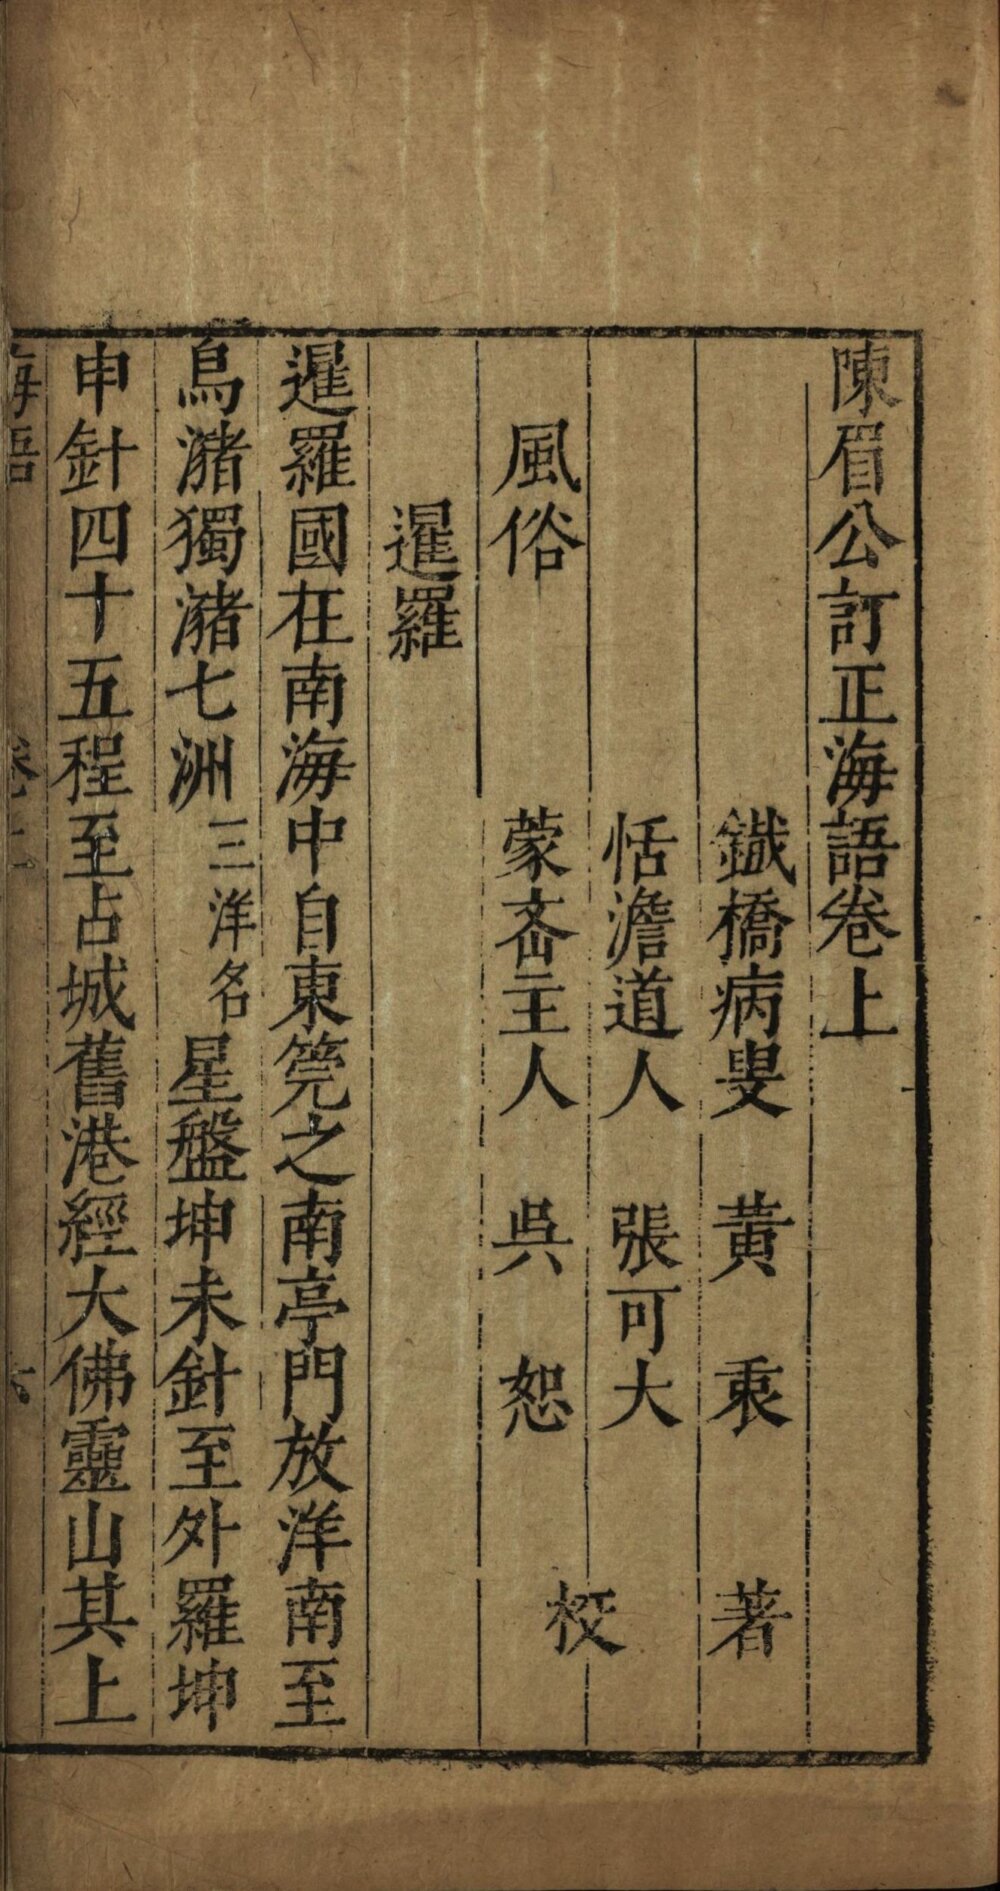 陳眉公訂正海語卷上
鐵橋病叟 黃衷 著
恬澹道人 張可大
蒙斎主人 吳恕 校
風俗
暹羅
暹羅國在南海中自東筦之南亭門放洋南至
烏瀦獨瀦七洲三洋名星盤坤未針至外羅坤
申針四十五程至占城舊港經大佛靈山其上
海語 卷上